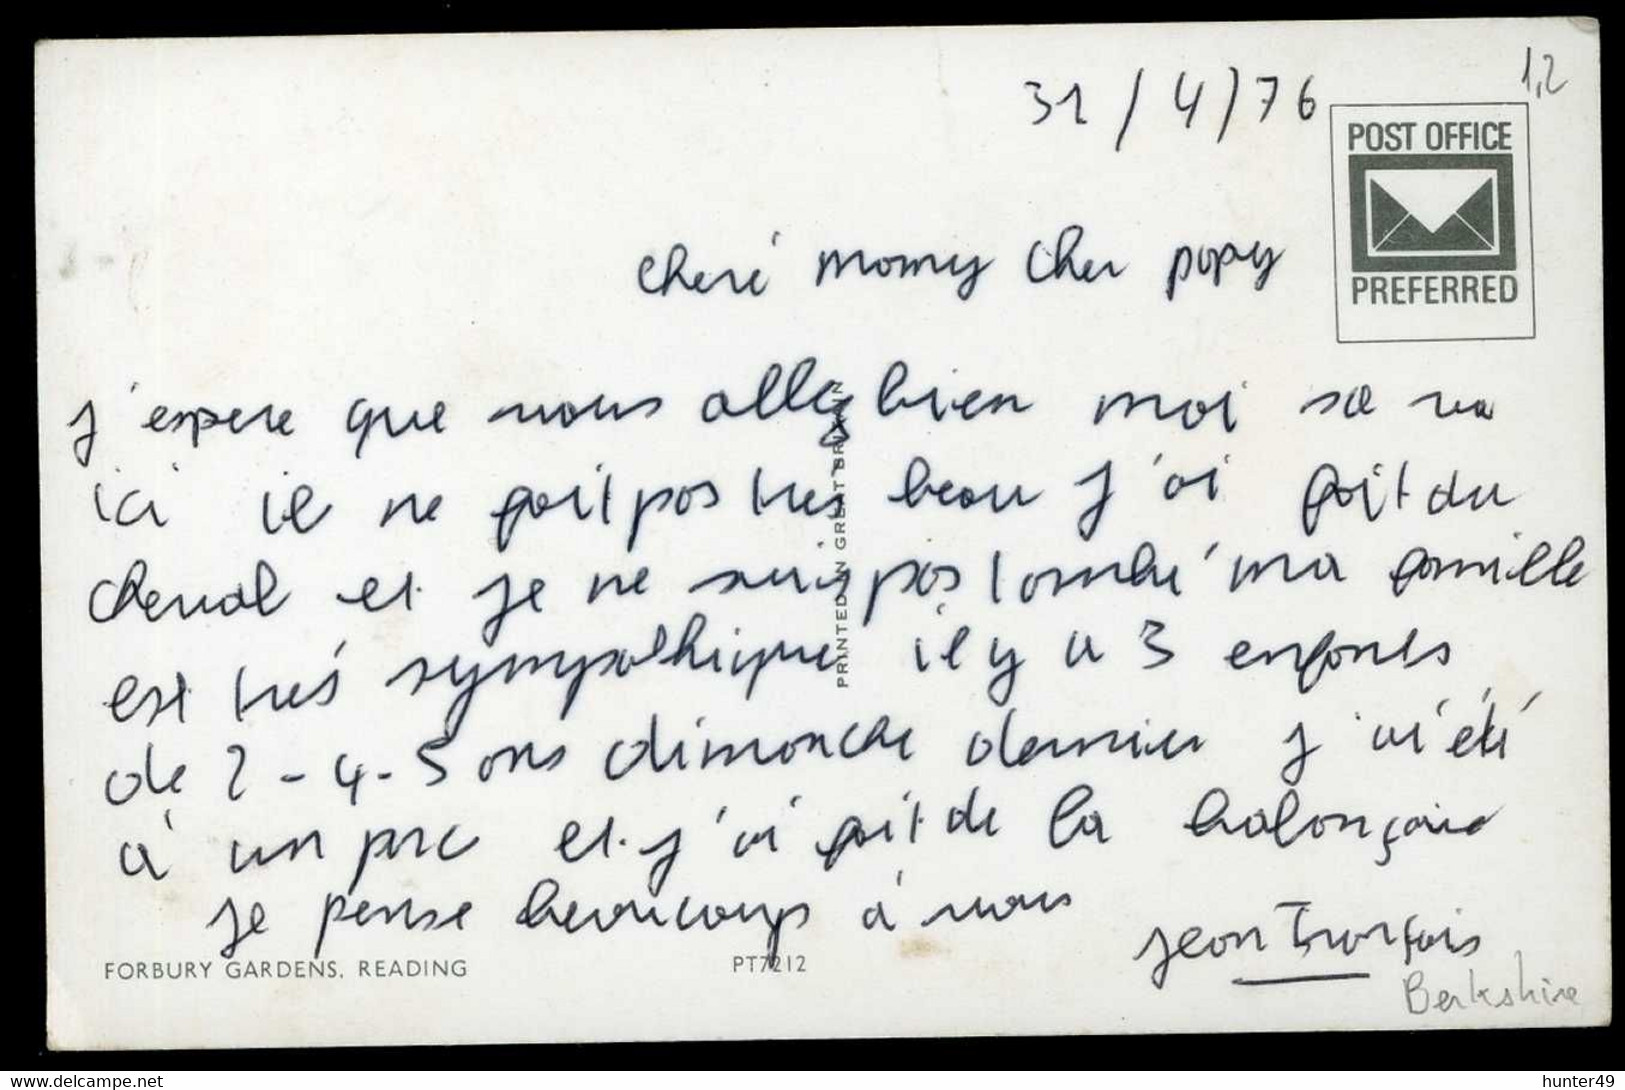 31/4/76
1,2
POST OFFICE
PREFERRED
cheré momy cher papy
j'espere que vous allez bien moi sa va
ici il ne fait pas tres beau j'ai fait du
cheval et je ne suis pas tombé ma famille
est trés sympathique il y a 3 enfants
de 2-4-5 ans dimanche dernier j'ai été
à un parc et j'ai fait de la balançoire
je pense beaucoup à vous
jean François
PRINTED IN GREAT BRITAIN
FORBURY GARDENS, READING
PT7212
Berkshire
www.delcampe.net
hunter49